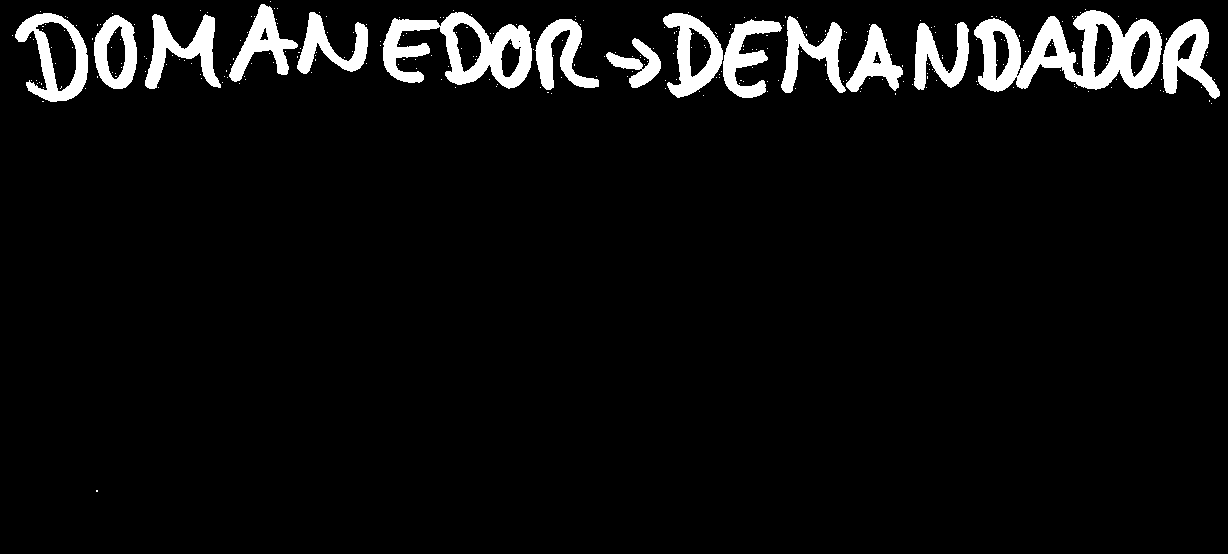 DOMANEDOR → DEMANDADOR